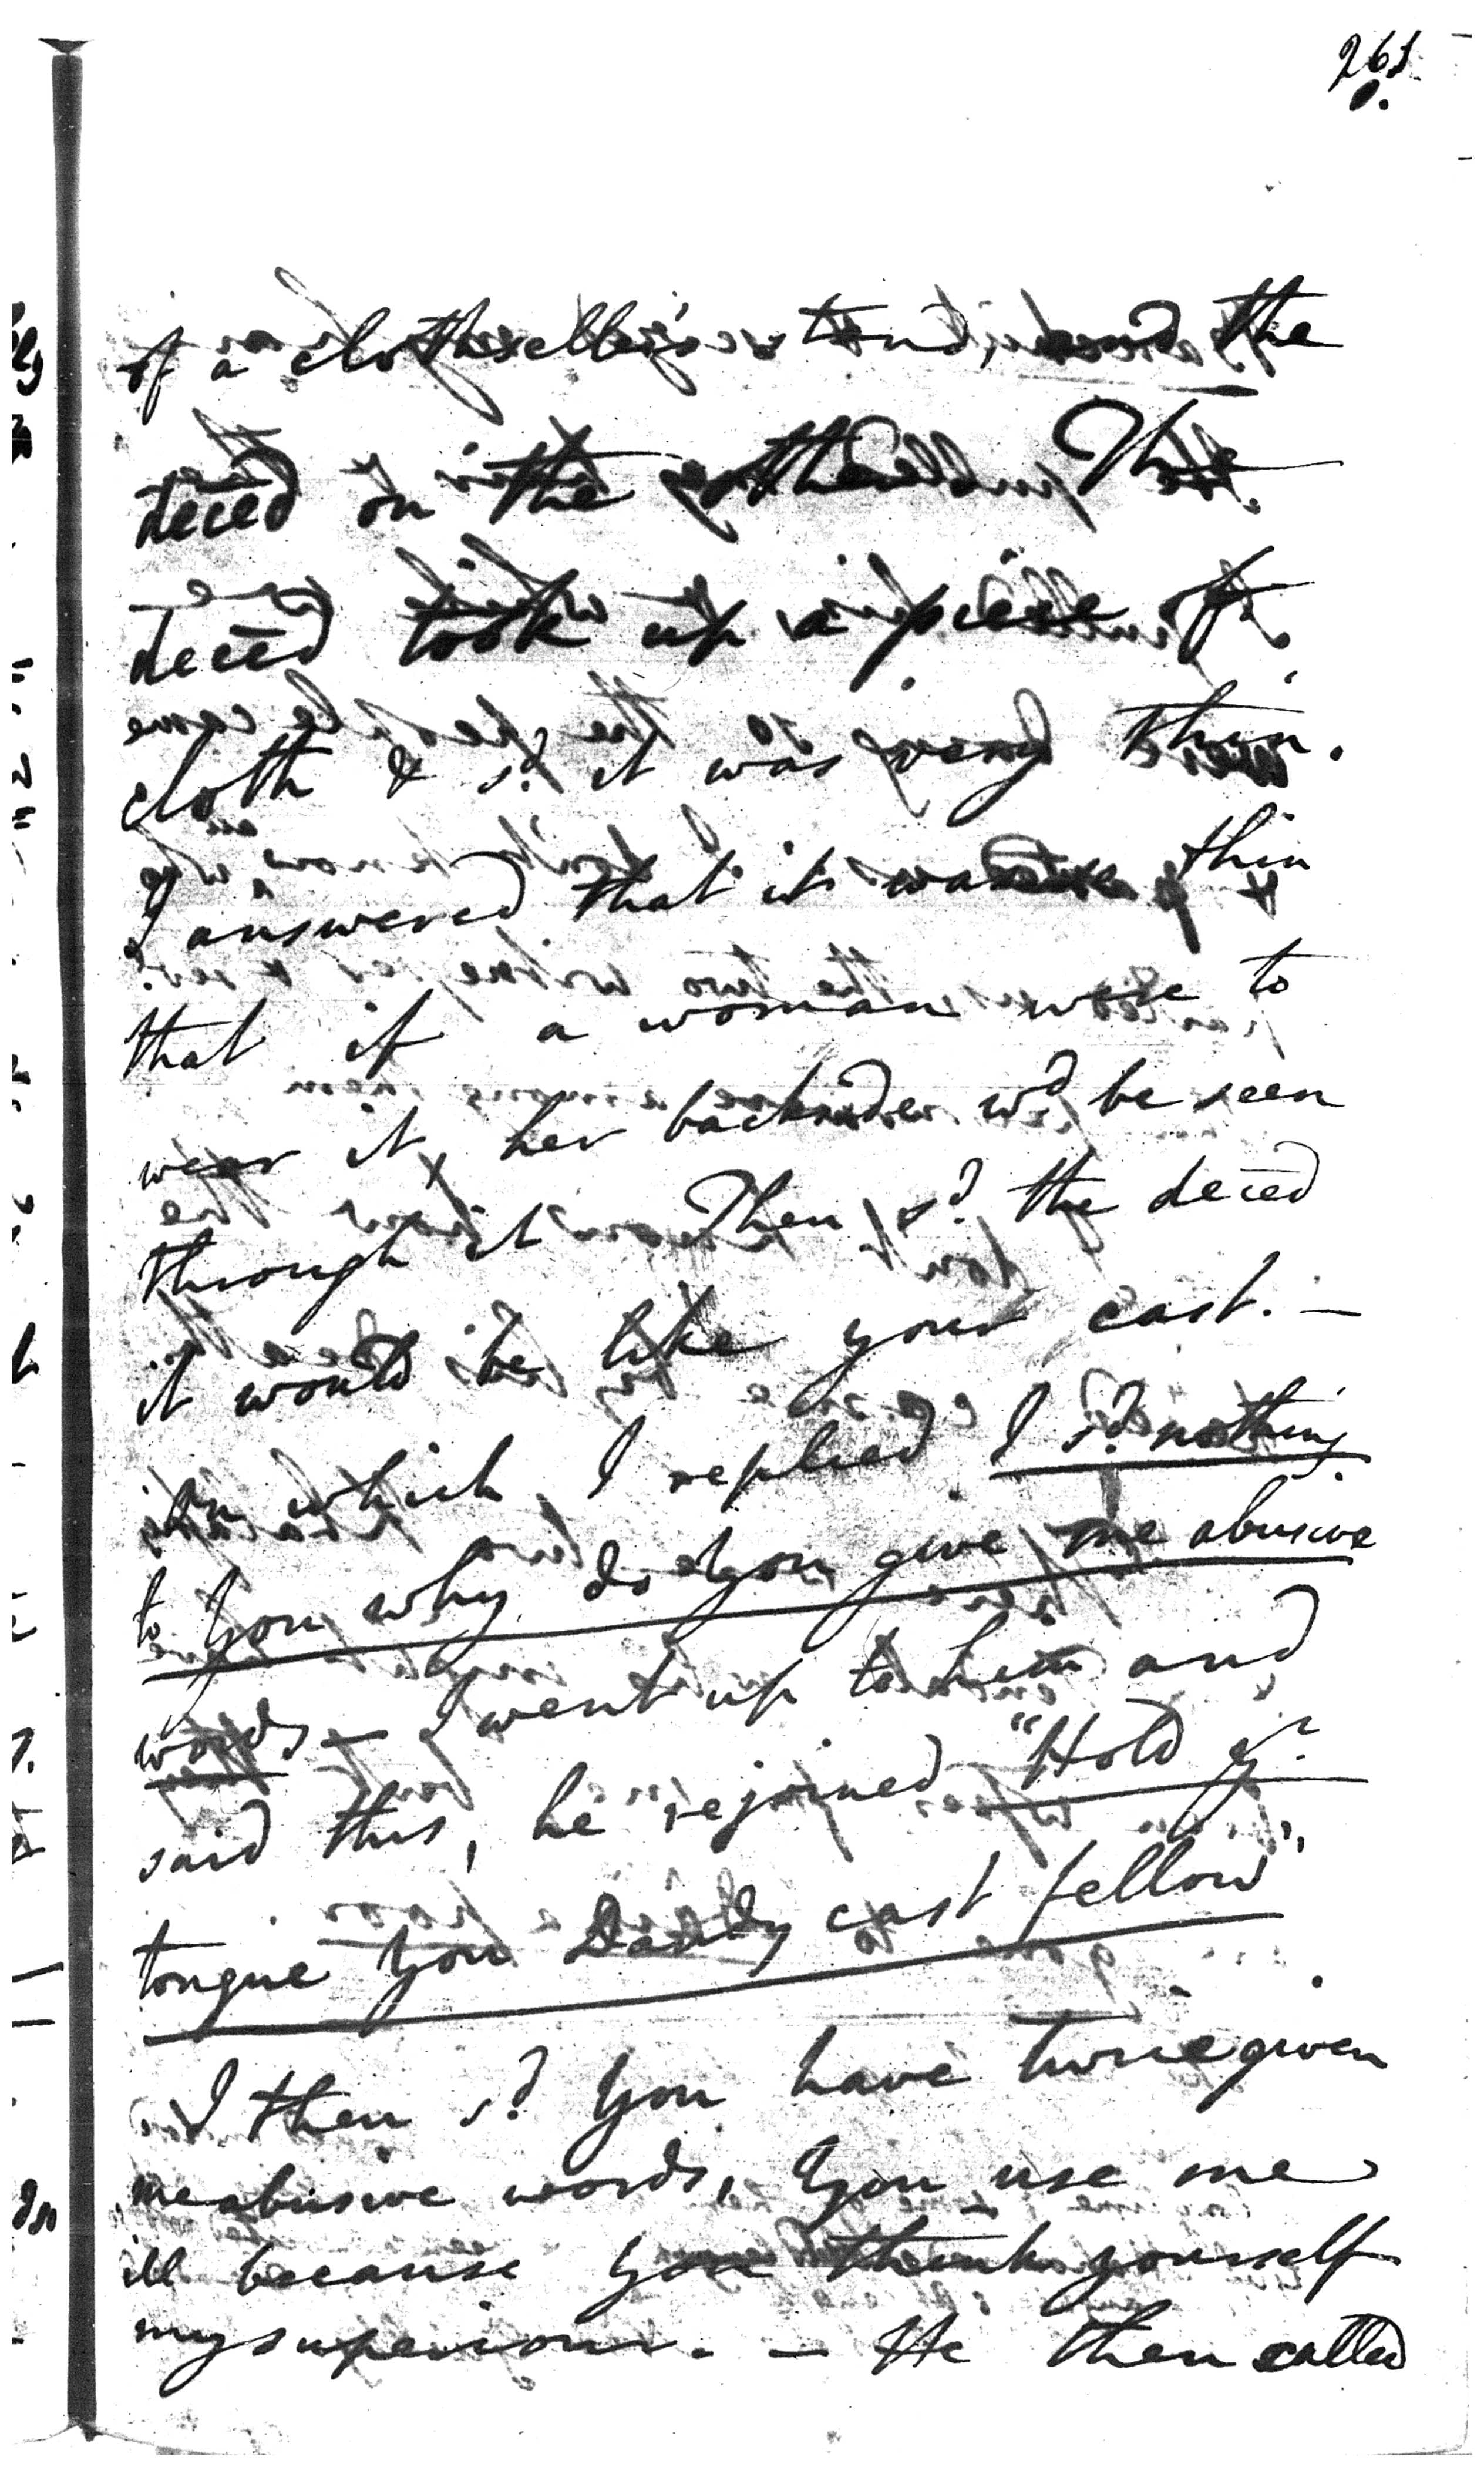 261
of a clothseller's stand, and the
deced on the other. The
deced took up a piece of
cloth & sd. it was very thin.
I answered that it was thin
that if a woman were to
wear it, her backside wd be seen
through it Then sd. the deced
it would be like your cast. —
on which I replied I sd. nothing
to you why do you give me abusive
words — I went up to him and
said this, he rejoined "Hold yr.
tongue you Dandy cast fellow"
I then sd. you have twice given
me abusive words, you use me
ill because you think yourself
my superiour. — He then called